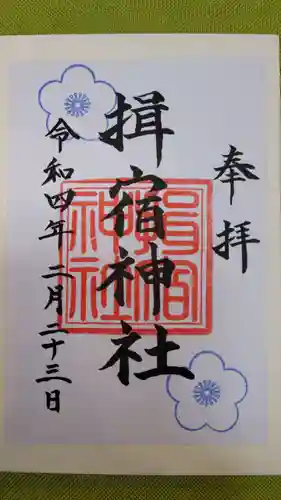 奉拝
揖宿神社
令和四年二月二十三日